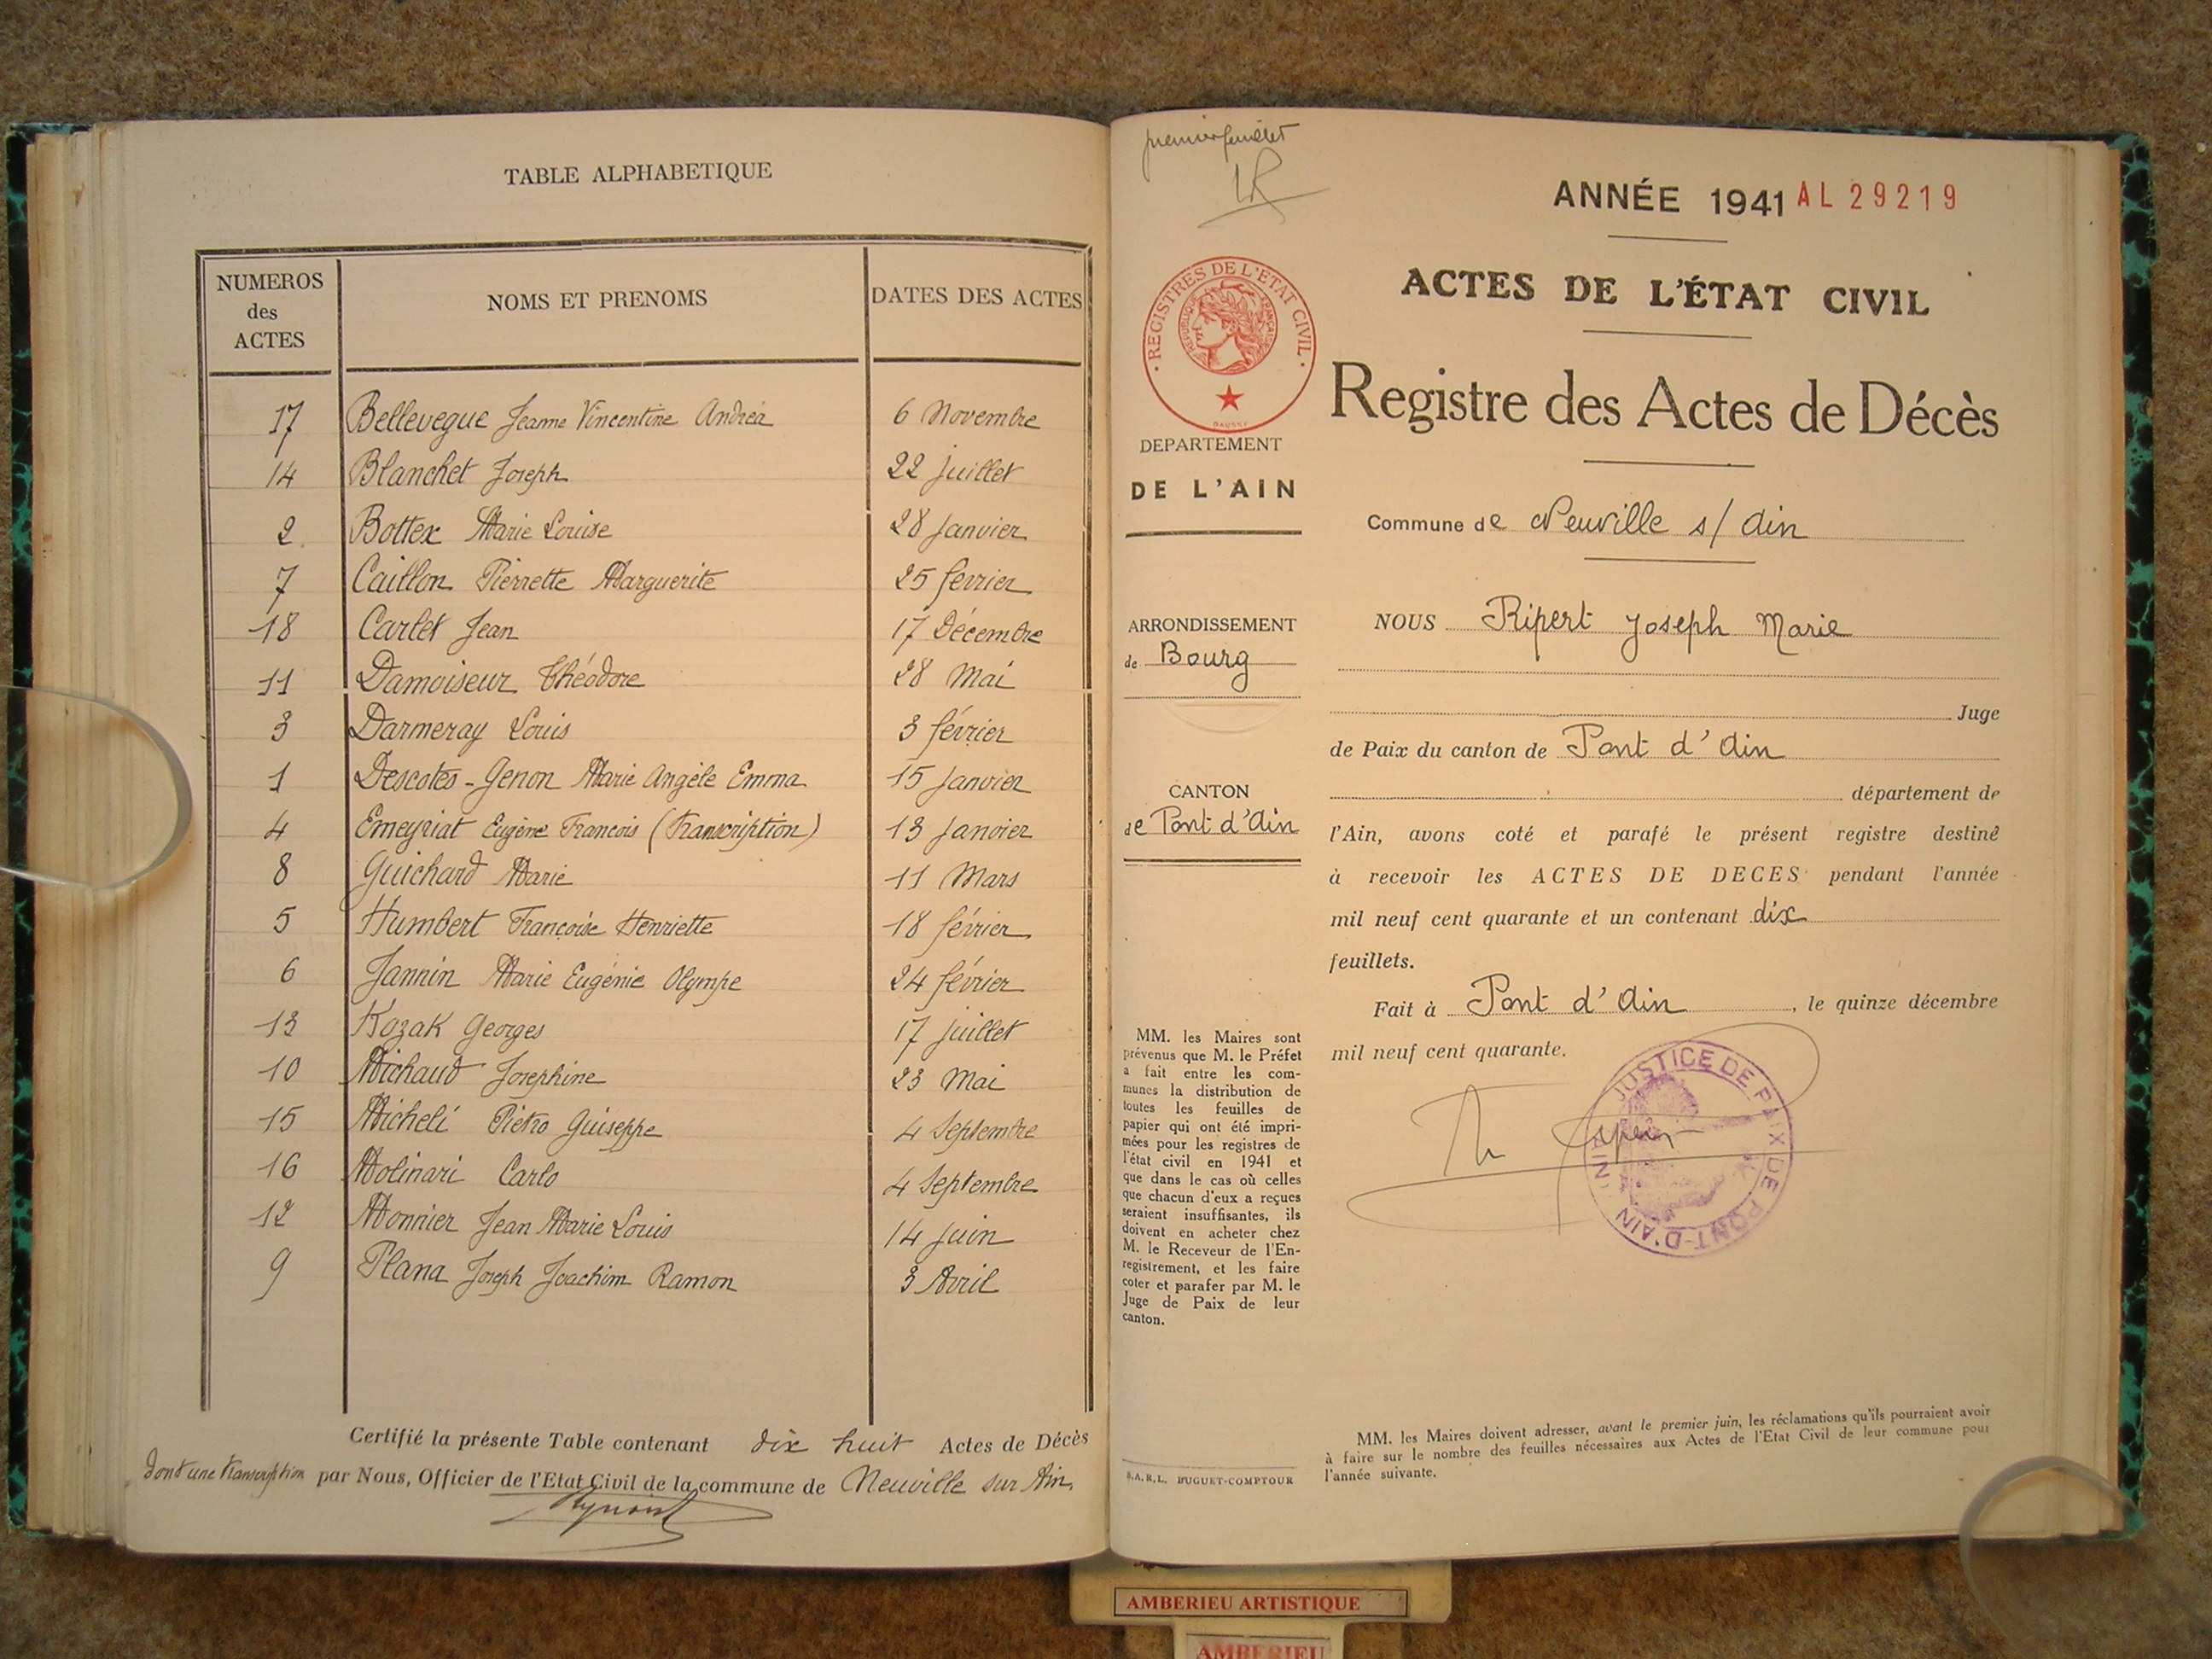 TABLE ALPHABETIQUE
NUMEROS des ACTES | NOMS ET PRENOMS | DATES DES ACTES
17 Bellevegue Jeanne Vincentine Andréa 6 Novembre
14 Blanchet Joseph 22 juillet
2 Bottex Marie Louise 28 Janvier
7 Caillon Pierrette Marguerite 25 fevrier
18 Carlet Jean 17 Décembre
11 Damoiseur Théodore 28 Mai
3 Darmeray Louis 3 février
1 Descotes-Genon Marie Angèle Emma 15 Janvier
4 Emeyriat Eugène Francois (Transcription) 13 Janvier
8 Guichard Marie 11 Mars
5 Humbert Françoise Henriette 18 février
6 Jannin Marie Eugénie Olympe 24 février
13 Kozak Georges 17 juillet
10 Michaud Josephine 23 Mai
15 Micheli Pietro Guiseppe 4 Septembre
16 Molinari Carlo 4 Septembre
12 Monnier Jean Marie Louis 14 juin
9 Plana Joseph Joachim Ramon 3 Avril
Certifié la présente Table contenant dix huit Actes de Décès
dont une transcription par Nous, Officier de l'Etat Civil de la commune de Neuville sur Ain.
premier feuillet
ANNÉE 1941 AL 29219
REGISTRES DE L'ETAT CIVIL
REPUBLIQUE FRANÇAISE
ACTES DE L'ÉTAT CIVIL
Registre des Actes de Décès
DEPARTEMENT
DE L'AIN
Commune de Neuville s/ Ain
ARRONDISSEMENT
de Bourg
CANTON
de Pont d'Ain
NOUS Ripert Joseph Marie
Juge
de Paix du canton de Pont d'Ain
département de
l'Ain, avons coté et parafé le présent registre destiné
à recevoir les ACTES DE DECES pendant l'année
mil neuf cent quarante et un contenant dix
feuillets.
Fait à Pont d'Ain, le quinze décembre
mil neuf cent quarante.
JUSTICE DE PAIX DE PONT-D'AIN (AIN)
MM. les Maires sont
prévenus que M. le Préfet
a fait entre les com-
munes la distribution de
toutes les feuilles de
papier qui ont été impri-
mées pour les registres de
l'état civil en 1941 et
que dans le cas où celles
que chacun d'eux a reçues
seraient insuffisantes, ils
doivent en acheter chez
M. le Receveur de l'En-
registrement, et les faire
coter et parafer par M. le
Juge de Paix de leur
canton.
S.A.R.L. DUGUET-COMPTOUR
MM. les Maires doivent adresser, avant le premier juin, les réclamations qu'ils pourraient avoir
à faire sur le nombre des feuilles nécessaires aux Actes de l'Etat Civil de leur commune pour
l'année suivante.
AMBERIEU ARTISTIQUE
AMBERIEU